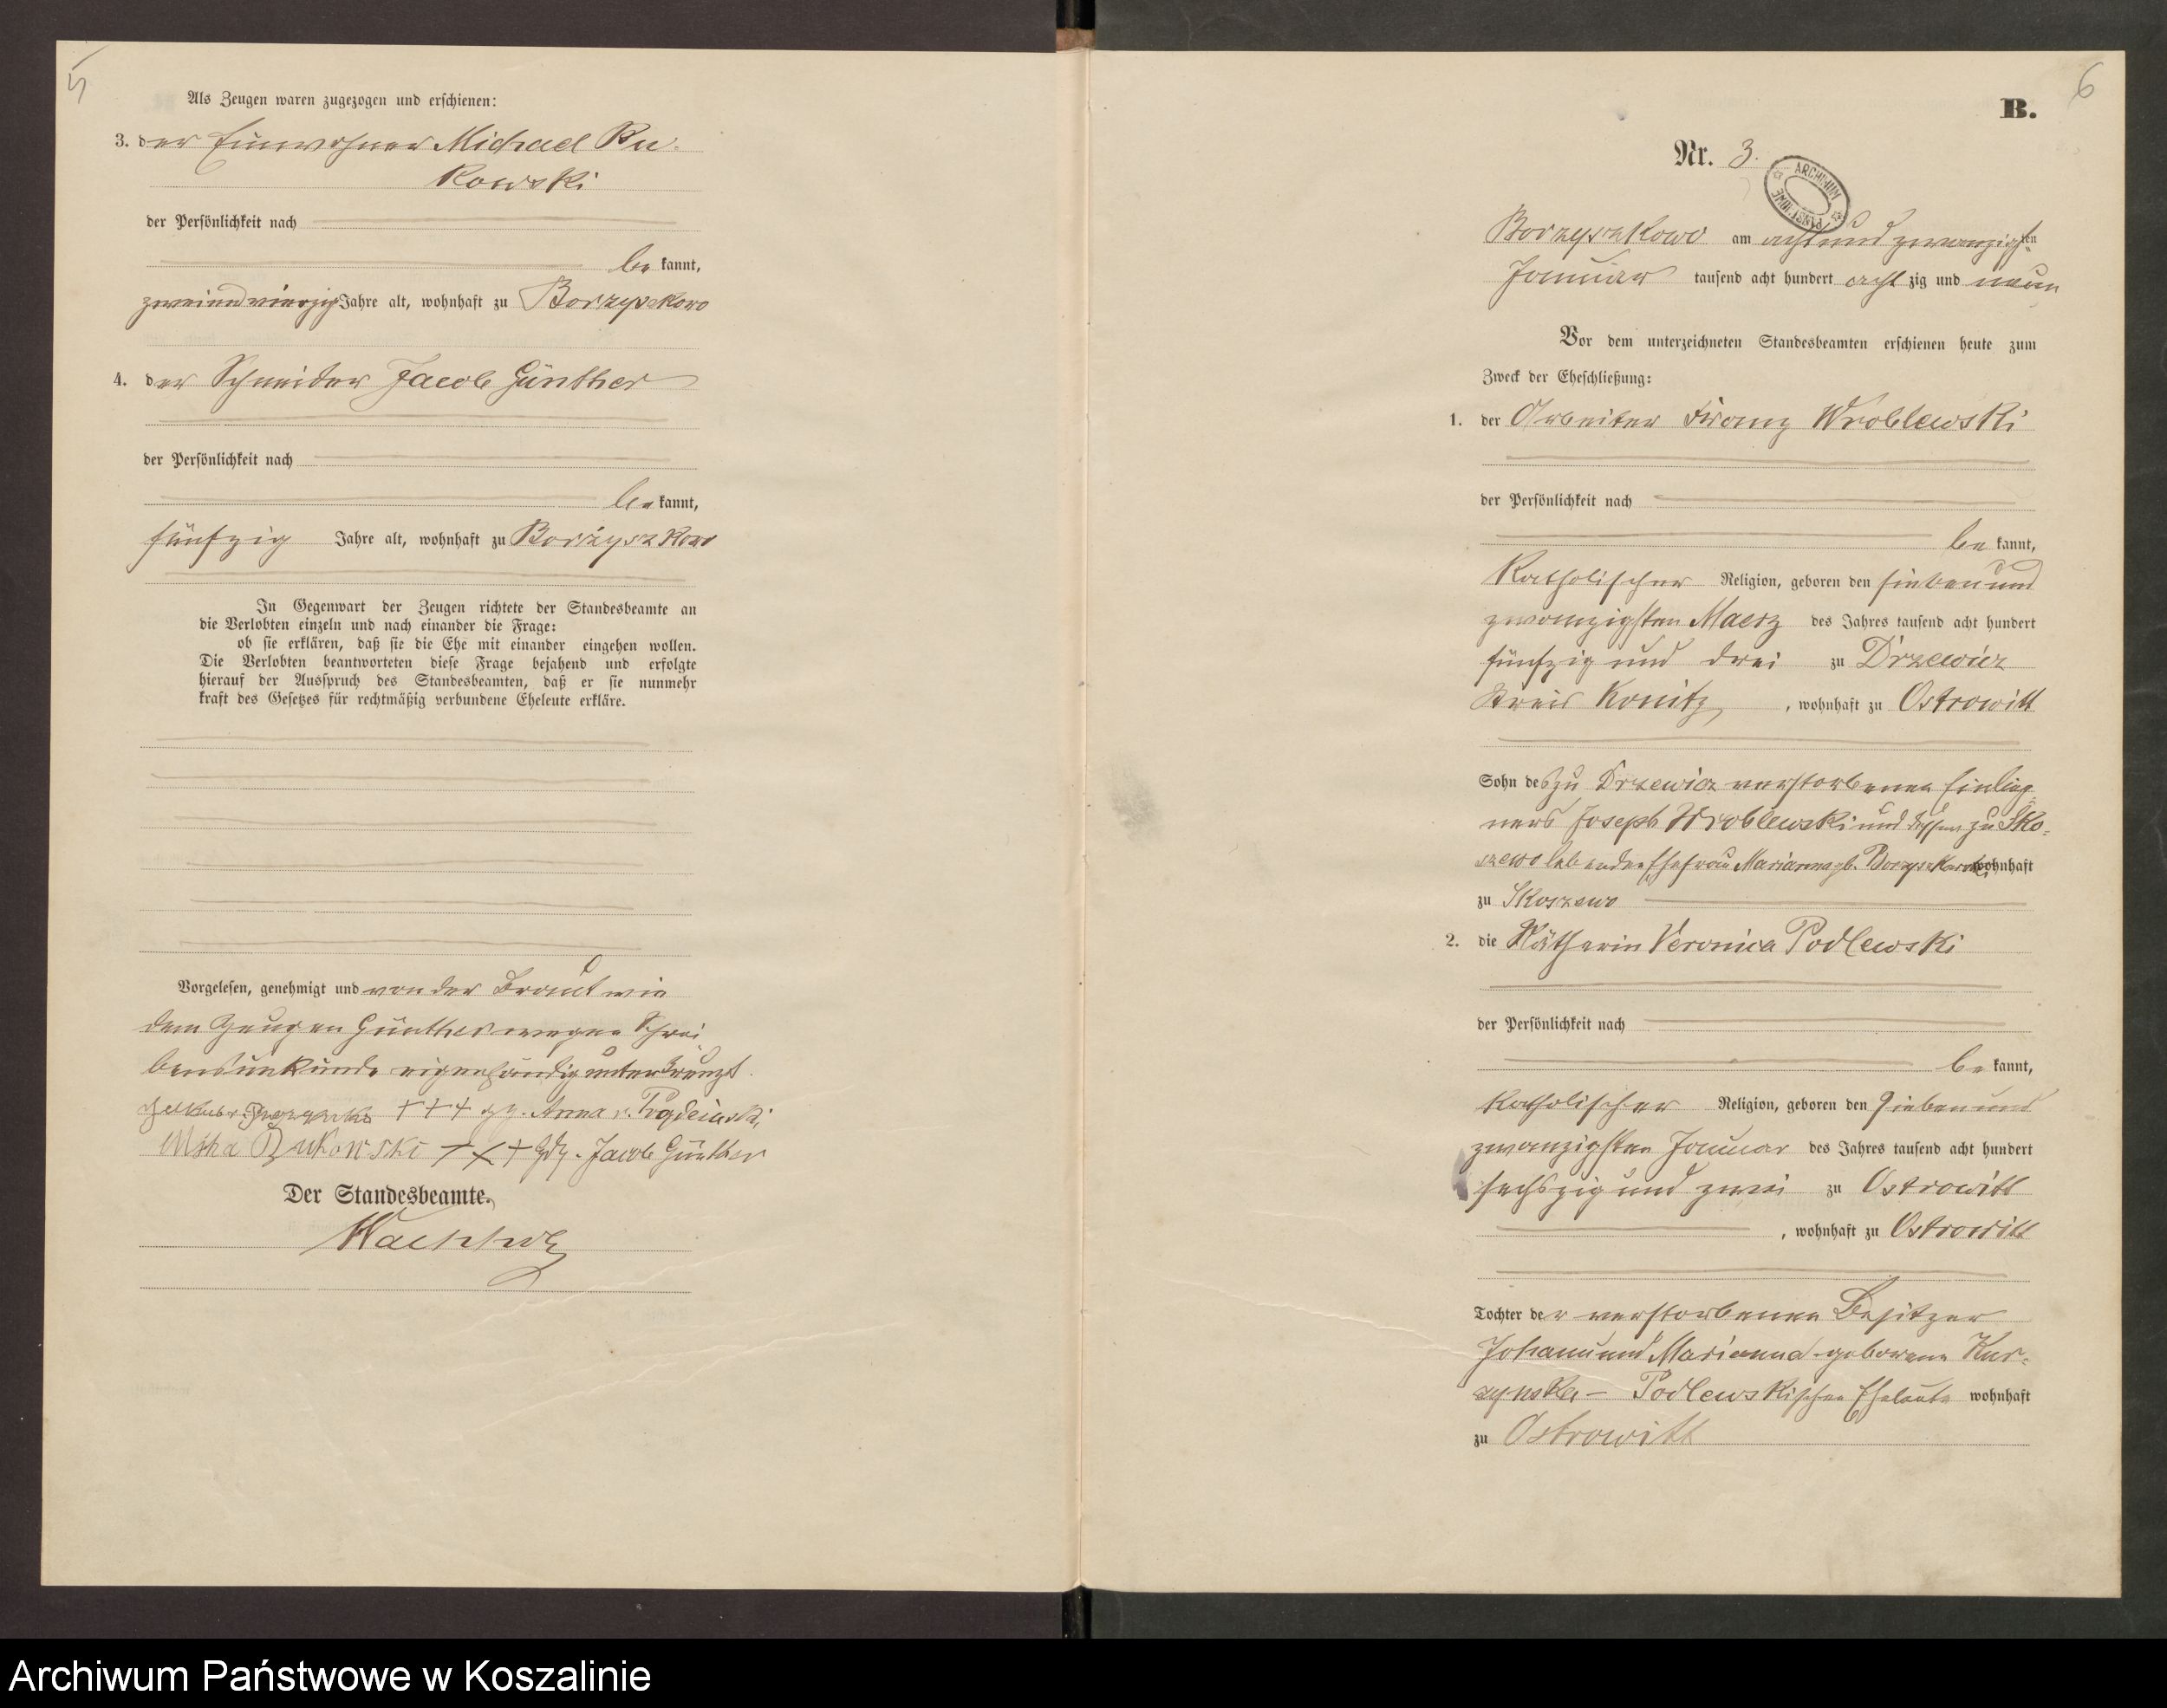 5
Als Zeugen waren zugezogen und erschienen:
3. der Einwohner Michael Ru-
kowski
der Persönlichkeit nach
be kannt,
zweiundvierzig Jahre alt, wohnhaft zu Borzyskowo
4. der Schneider Jacob Günther
der Persönlichkeit nach
be kannt,
fünfzig Jahre alt, wohnhaft zu Borzyszkowo
In Gegenwart der Zeugen richtete der Standesbeamte an
die Verlobten einzeln und nach einander die Frage:
ob sie erklären, daß sie die Ehe mit einander eingehen wollen.
Die Verlobten beantworteten diese Frage bejahend und erfolgte
hierauf der Ausspruch des Standesbeamten, daß er sie nunmehr
kraft des Gesetzes für rechtmäßig verbundene Eheleute erkläre.
Vorgelesen, genehmigt und von der Braut wie
dem Zeugen Günther wegen Schrei
bensunkunde eigenhändig unterkreuzt.
+++ gz. Anna v.
Rukowski +++ gz. Jacob Günther
Der Standesbeamte.
6
B.
Nr. 3.
ARCHIWUM PAŃSTWOWE
Borzyszkowo am acht und zwanzigsten
Januar tausend acht hundert acht zig und neun
Vor dem unterzeichneten Standesbeamten erschienen heute zum
Zweck der Eheschließung:
1. der Arbeiter Franz Wroblewski
der Persönlichkeit nach
be kannt,
katholischer Religion, geboren den sieben und
zwanzigsten Maerz des Jahres tausend acht hundert
fünfzig und drei zu Drzewicz
Kreis Konitz, wohnhaft zu Ostrowitt
Sohn des zu Drzewicz verstorbenen Einlieg-
ners Joseph Wroblewski und dessen zu Sko-
szewo lebender Ehefrau Marianna gb. wohnhaft
zu Skoszewo
2. die Käthnerin Veronica Podlewski
der Persönlichkeit nach
be kannt,
katholischer Religion, geboren den sieben und
zwanzigsten Januar des Jahres tausend acht hundert
sechszig und zwei zu Ostrowitt
, wohnhaft zu Ostrowitt
Tochter der verstorbenen Besitzer
Johann und Marianna geborene Kur-
zynska - Podlewskischen Eheleute wohnhaft
zu Ostrowitt
Archiwum Państwowe w Koszalinie